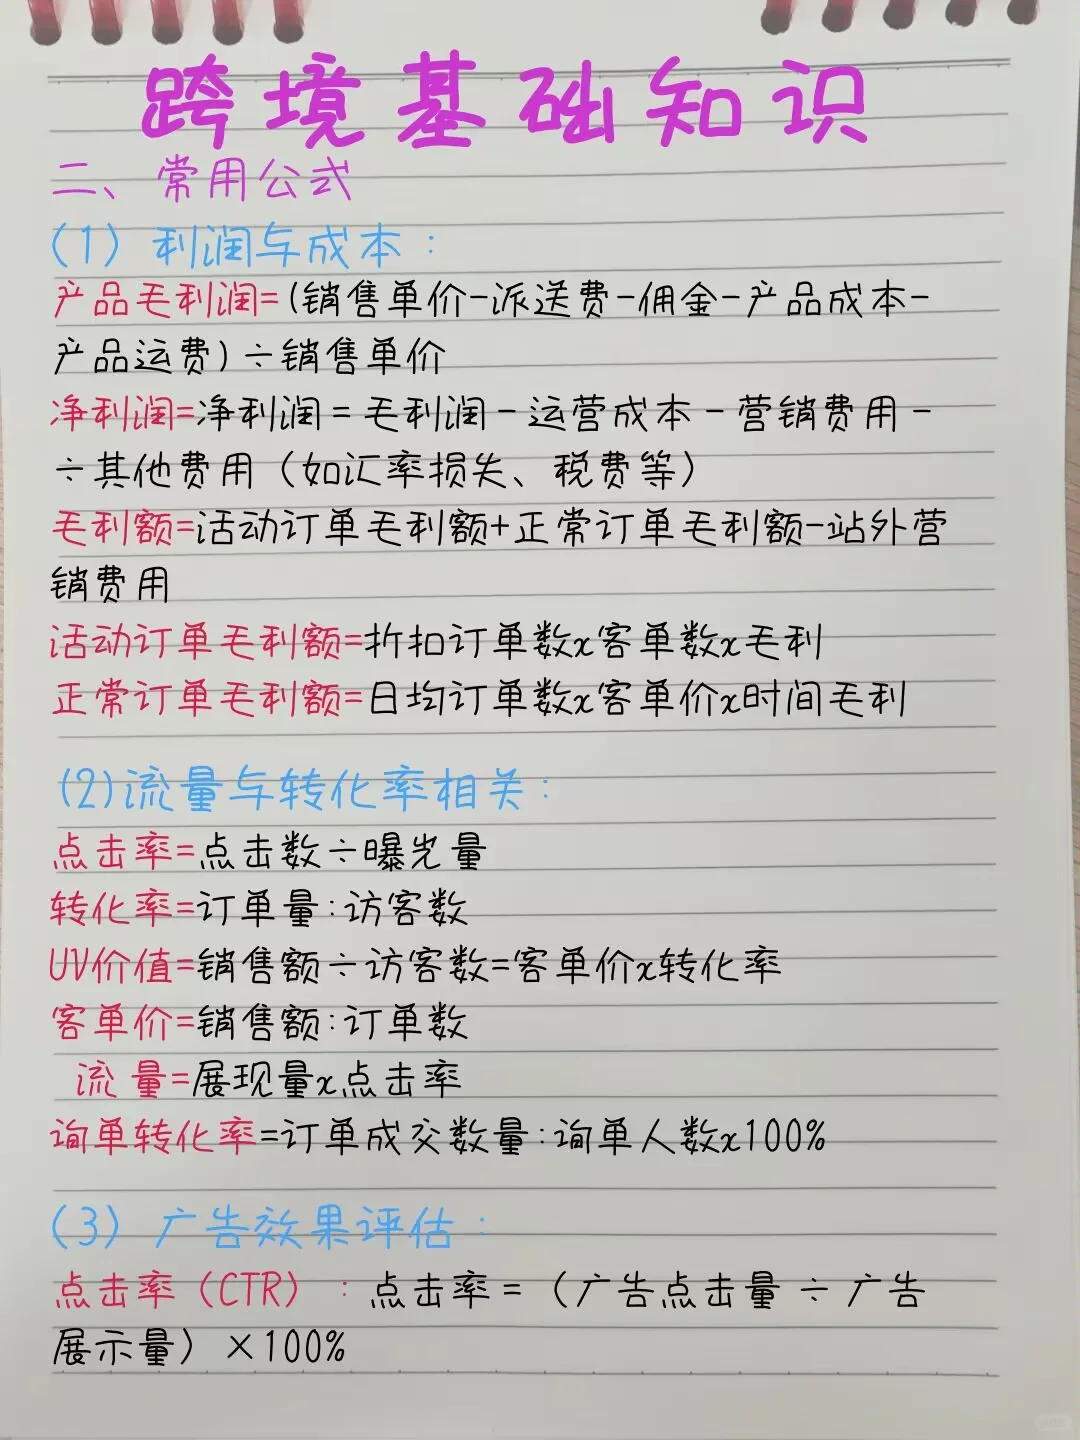 跨境基础知识
二、常用公式
(1) 利润与成本:
产品毛利润=(销售单价-派送费-佣金-产品成本-
产品运费)÷销售单价
净利润=净利润=毛利润-运营成本-营销费用-
÷其他费用（如汇率损失、税费等）
毛利额=活动订单毛利额+正常订单毛利额-站外营
销费用
活动订单毛利额=折扣订单数x客单数x毛利
正常订单毛利额=日均订单数x客单价x时间毛利
(2)流量与转化率相关:
点击率=点击数÷曝光量
转化率=订单量:访客数
UV价值=销售额÷访客数=客单价x转化率
客单价=销售额:订单数
流量=展现量x点击率
询单转化率=订单成交数量:询单人数x100%
(3) 广告效果评估:
点击率（CTR）:点击率=（广告点击量÷广告
展示量）×100%